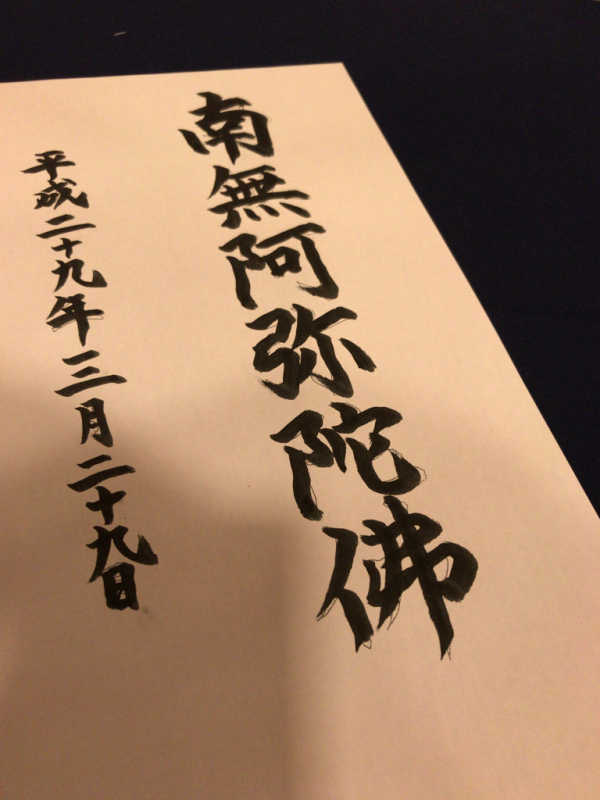 南無阿弥陀佛
平成二十九年三月二十九日